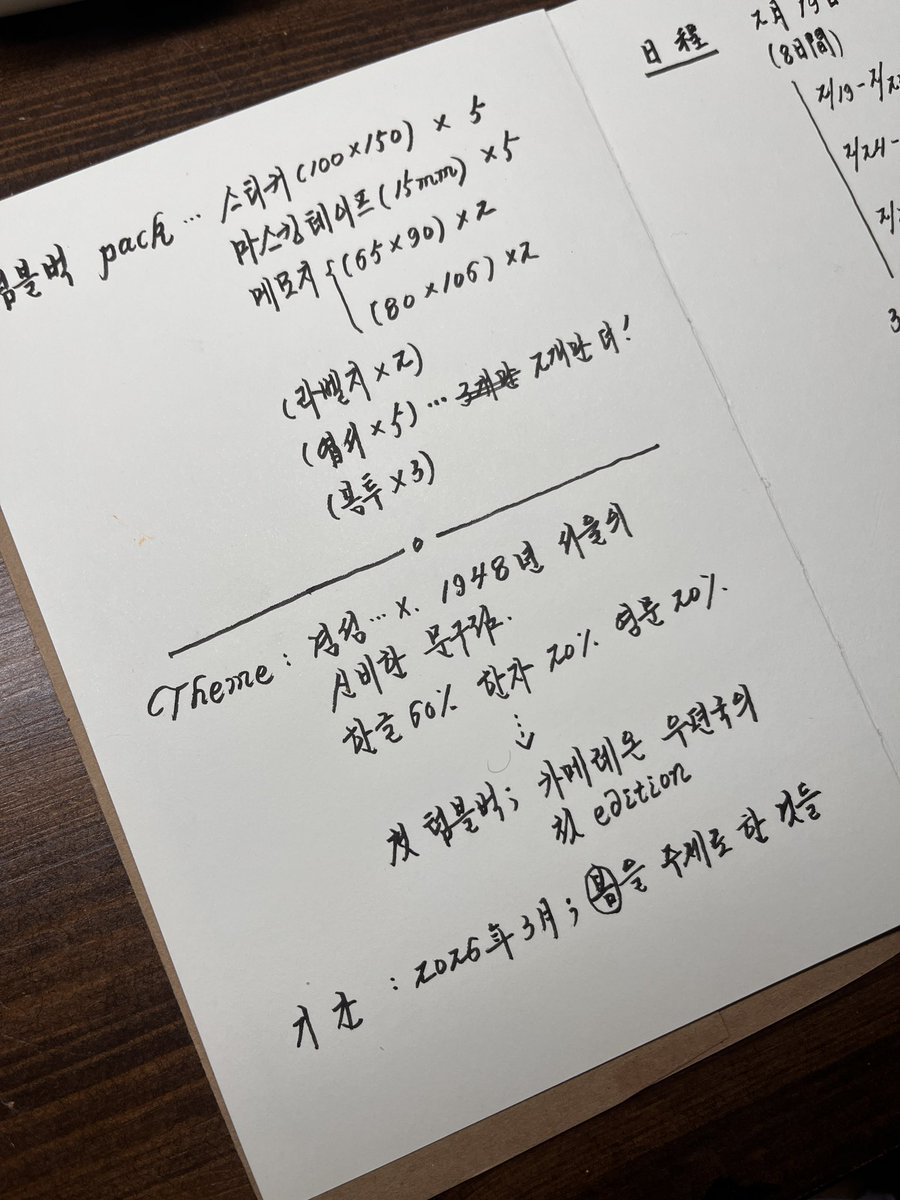 텀블벅 pack … 스티커(100×150) × 5
마스킹테이프(15mm) ×5
메모지 {(65×90) ×2
(80×105) ×2
(라벨지 ×2)
(엽서 ×5) … 2개만 더!
(봉투 ×3)
Theme : 경성…×. 1948년 서울의
신비한 문구점.
한글 60% 한자 20% 영문 20%.
첫 텀블벅; 카메레온 우편국의
첫 edition
기간 : 2026年 3月; 봄을 주제로 한 것들
日程 2月 19日
(8日間)
2/19-2/2
2/24-
2/
3